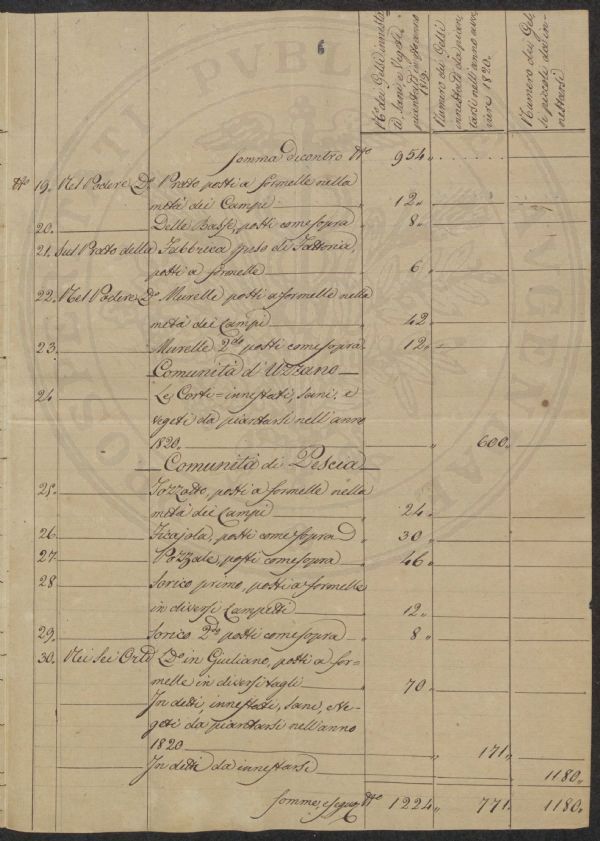 6
N.o dei Gelsi innestati, Sani, e Vegeti piantati in quest'anno 1819.
Numero dei Gelsi innestati da piantarsi nell'anno avvenire 1820.
Numero dei Gelsi piccoli da innestarsi
Somma di contro N.o 954
N.o 19. Nel Podere D.o Prato posti a formelle nella
metà dei Campi 12
20. Delle Basse, posti come sopra 8
21. Sul Prato della Fabbrica preso di Fattoria,
posti a formelle 6
22. Nel Podere D.o Murelle posti a formelle nella
metà dei Campi 42
23. Murelle 2.do posti come sopra 12
Comunità d'Uzzano
24 Le Corti = innestati, sani, e
vegeti da piantarsi nell'anno
1820. 600
Comunità di Pescia
25. Pozzotto, posti a formelle nella
metà dei Campi 24
26. Ficajola, posti come sopra 30
27. Pozzale, posti come sopra 46
28 Sorico primo, posti a formelle
in diversi Campetti 12
29. Sorico 2.do posti come sopra 8
30. Nei Sei Orti L.do in Giuliano, posti a for=
melle in diversi tagli 70
In detti, innestati, sani, e Ve=
geti da piantarsi nell'anno
1820 171
In detti da innestarsi 1180
Somme, e segue N.o 1224 771 1180